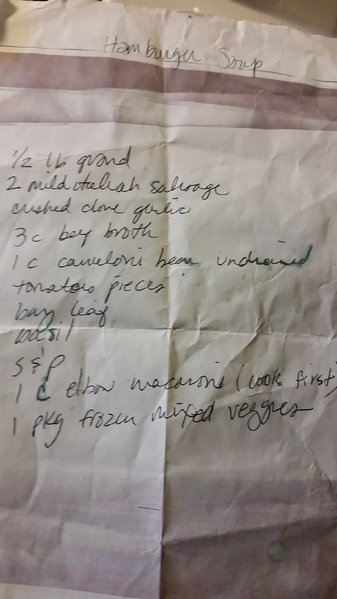 Hamburger Soup
1/2 lb grond
2 mild italian sausage
crushed clove garlic
3 c beef broth
1 c canneloni bean undrained
tomatoes pieces
bay leaf
basil
s & p
1 c elbow macaroni (cook first)
1 pkg frozen mixed veggies